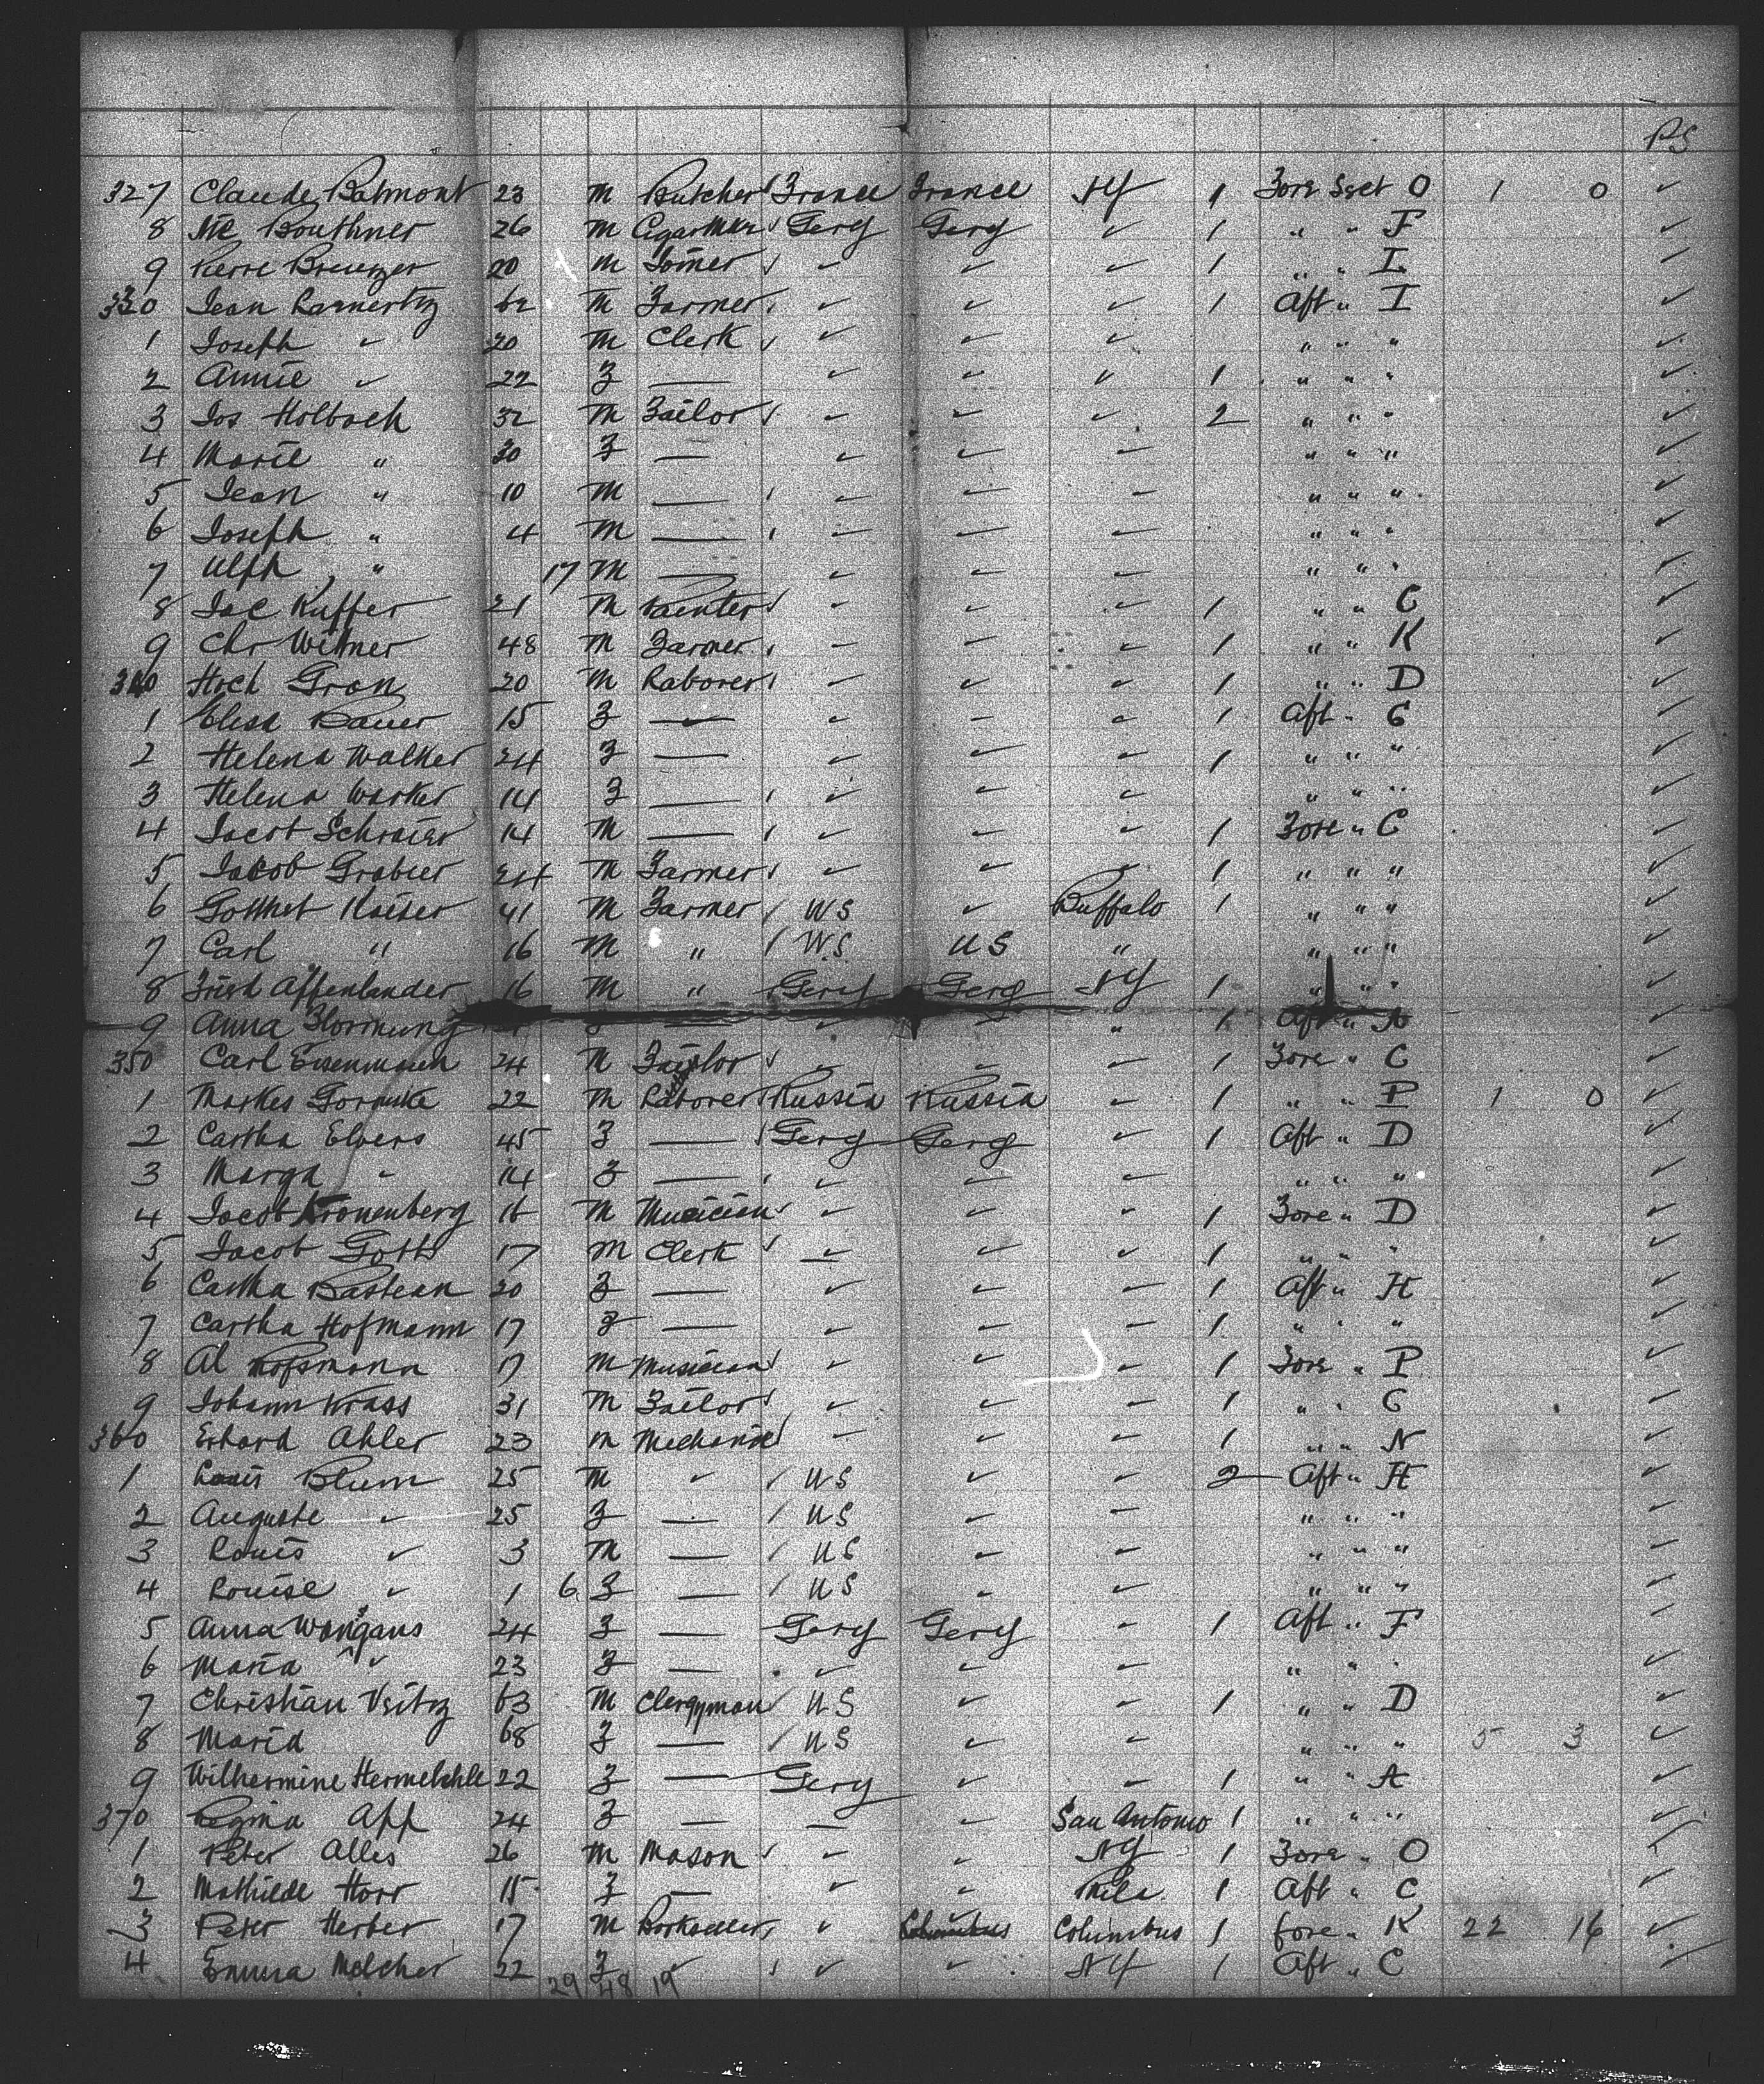 PS
327 Claude Balmont 23 M Butcher France France NY 1 Fore Sect O 1 0 ✓
8 Nic Bouthner 26 M Cigarmkr Gery Gery ✓ 1 " " F ✓
9 Pierre 20 M ✓ ✓ ✓ 1 " " I ✓
330 Jean Ramertz 62 M Farmer ✓ ✓ ✓ 1 Aft " I ✓
1 Joseph " 20 M Clerk ✓ ✓ ✓ " " " ✓
2 Annie " 22 F — ✓ ✓ ✓ 1 " " " ✓
3 Jos Holbach 32 M Tailor ✓ ✓ ✓ 2 " " " ✓
4 Marie " 30 F — ✓ ✓ ✓ " " " ✓
5 Jean " 10 M — ✓ ✓ ✓ " " " ✓
6 Joseph " 4 M — ✓ ✓ ✓ " " " ✓
7 Alph " 17 M — ✓ ✓ ✓ " " " ✓
8 Jac Kuffer 21 M Painter ✓ ✓ ✓ 1 " " C ✓
9 Chr Witmer 48 M Farmer ✓ ✓ ✓ 1 " " K ✓
340 Hoch Gron 20 M Laborer ✓ ✓ ✓ 1 " " D ✓
1 Elisa Bauer 15 F — ✓ ✓ ✓ 1 Aft " C ✓
2 Helena Walker 24 F — ✓ ✓ ✓ 1 " " " ✓
3 Helena Warker 14 F — ✓ ✓ ✓ " " " ✓
4 Jacob Schroier 14 M — ✓ ✓ ✓ 1 Fore " C ✓
5 Jacob Grabier 24 M Farmer ✓ ✓ ✓ 1 " " " ✓
6 Kaiser 41 M Farmer US ✓ Buffalo 1 " " " ✓
7 Carl " 16 M " US US " " " " ✓
8 Affenlander 16 M " Gery Gery NY 1 " " " ✓
9 Anna Hornung F — ✓ ✓ " 1 Aft " A ✓
350 Carl Eisenmann 24 M Tailor ✓ ✓ ✓ 1 Fore " C ✓
1 Markes 22 M Laborer Russia Russia ✓ 1 " " P 1 0 ✓
2 Cartha Elvers 45 F — Gery Gery ✓ 1 Aft " D ✓
3 Marga " 14 F — ✓ ✓ ✓ " " " ✓
4 Jacob Kronenberg 16 M Musician ✓ ✓ ✓ 1 Fore " D ✓
5 Jacob Gotts 17 M Clerk ✓ ✓ ✓ 1 " " " ✓
6 Cartha Bastean 20 F — ✓ ✓ ✓ 1 Aft " H ✓
7 Cartha Hofmann 17 F — ✓ ✓ ✓ 1 " " " ✓
8 Al Hofsmann 17 M Musician ✓ ✓ ✓ 1 Fore " P ✓
9 Johann Krass 31 M Tailor ✓ ✓ ✓ 1 " " C ✓
360 Erhard Ahler 23 M Mechanic ✓ ✓ ✓ 1 " " N ✓
1 Louis Blum 25 M ✓ US ✓ ✓ 2 Aft " H ✓
2 Auguste " 25 F — US ✓ ✓ " " " ✓
3 Louis " 3 M — US ✓ ✓ " " " ✓
4 Louise " 1 6 F — US ✓ ✓ " " " ✓
5 Anna Wongans 24 F — Gery Gery ✓ 1 Aft " F ✓
6 Maria " 23 F — ✓ ✓ ✓ " " " ✓
7 Christian Veitz 63 M Clergyman US ✓ ✓ 1 " " D ✓
8 Maria 68 F — US ✓ ✓ " " " 5 3 ✓
9 Wilhermine 22 F — Gery ✓ ✓ 1 " " A ✓
370 Regina App 24 F — — ✓ San Antonio 1 " " " ✓
1 Peter Alles 26 M Mason ✓ ✓ NY 1 Fore " O ✓
2 Mathilde Horr 15 F — ✓ ✓ Phila 1 Aft " C ✓
3 Peter Herber 17 M ✓ Columbus Columbus 1 fore " K 22 16 ✓
4 Emma Melcher 22 F ✓ ✓ ✓ NY 1 Aft " C ✓
29 48 19